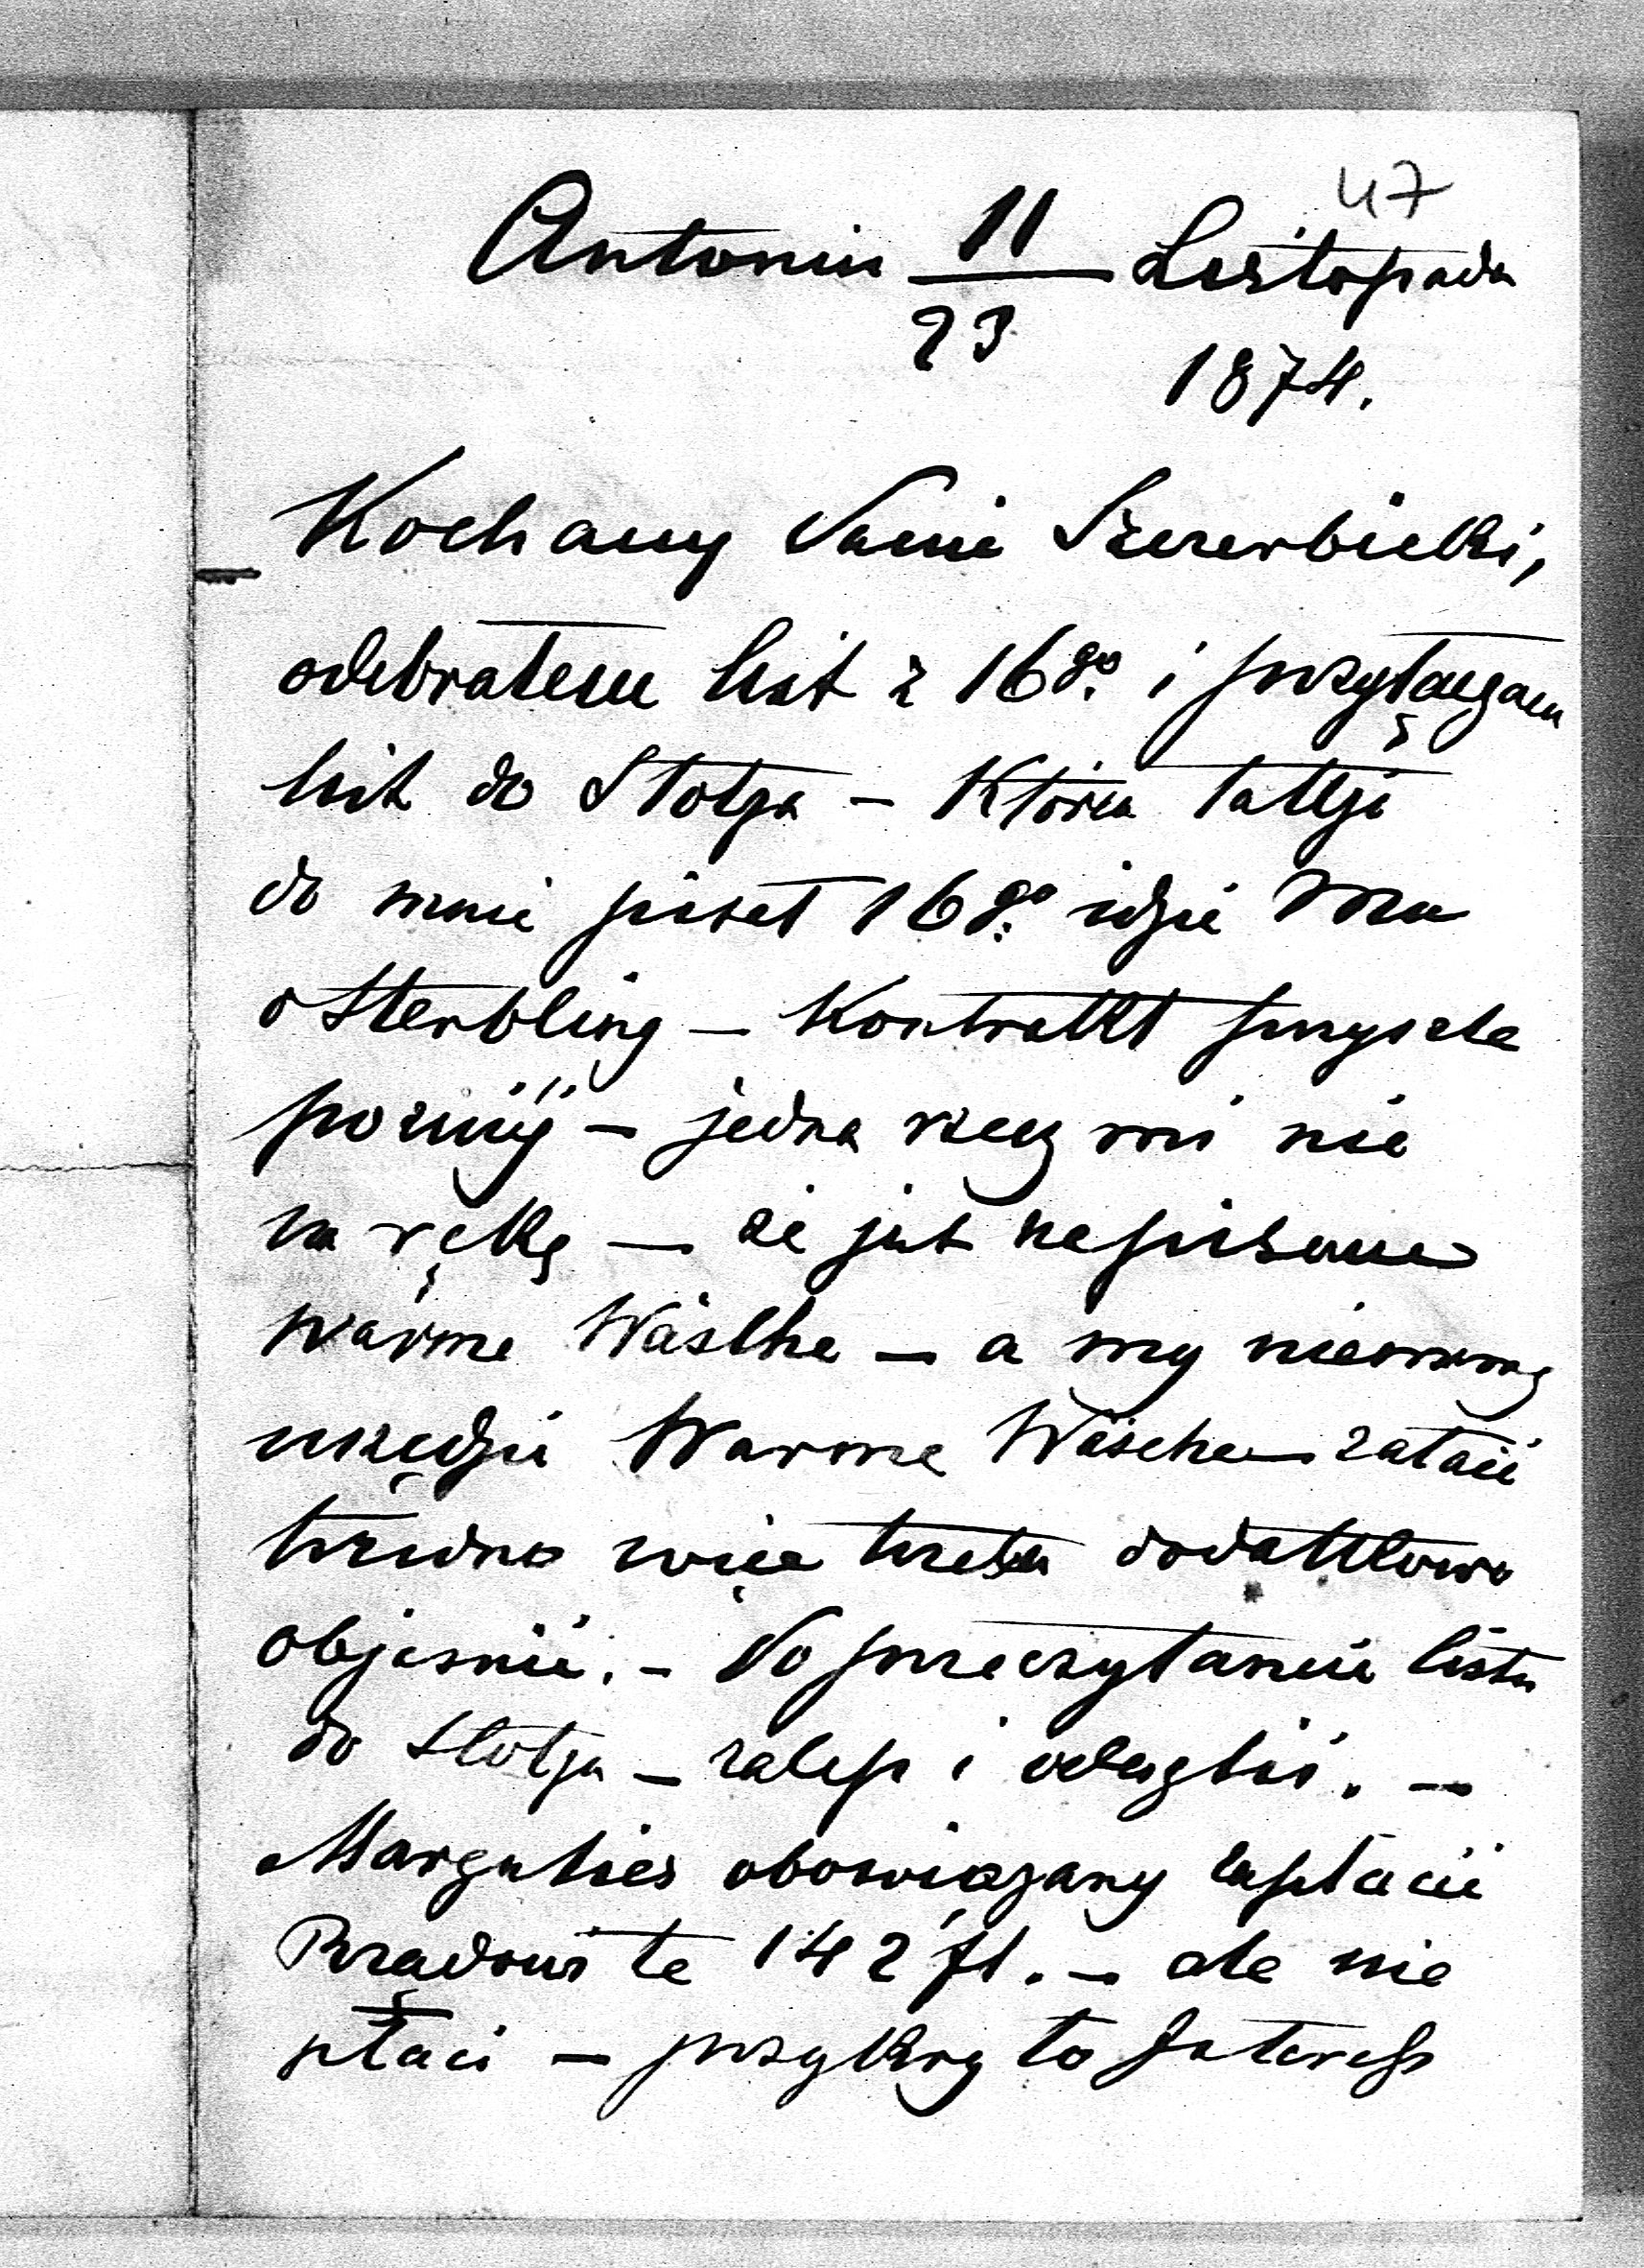 47
Antonin 11/23 Listopada
1874.
Kochany Panie Szczerbicki,
odebrałem list z 16go. i przyłączam
list do Stotza – Która także
do mnie pisał 16go. idzie mu
o Sterbling – Kontrakt przyszle
pozniij – jedna rzecz mi nie
na rękę – że jest napisane
warme Wäsche – a my niemamy
wszędzie Warme Wäsche – zataić
trudno więc trzeba dodatkowo
objasnić. – Po przeczytaniu listu
do Stotza – zalep i odeszlij. –
Margulies obowiązany zapłacić
Rządowi te 142 fl. – ale nie
płaci – przykry to Interess